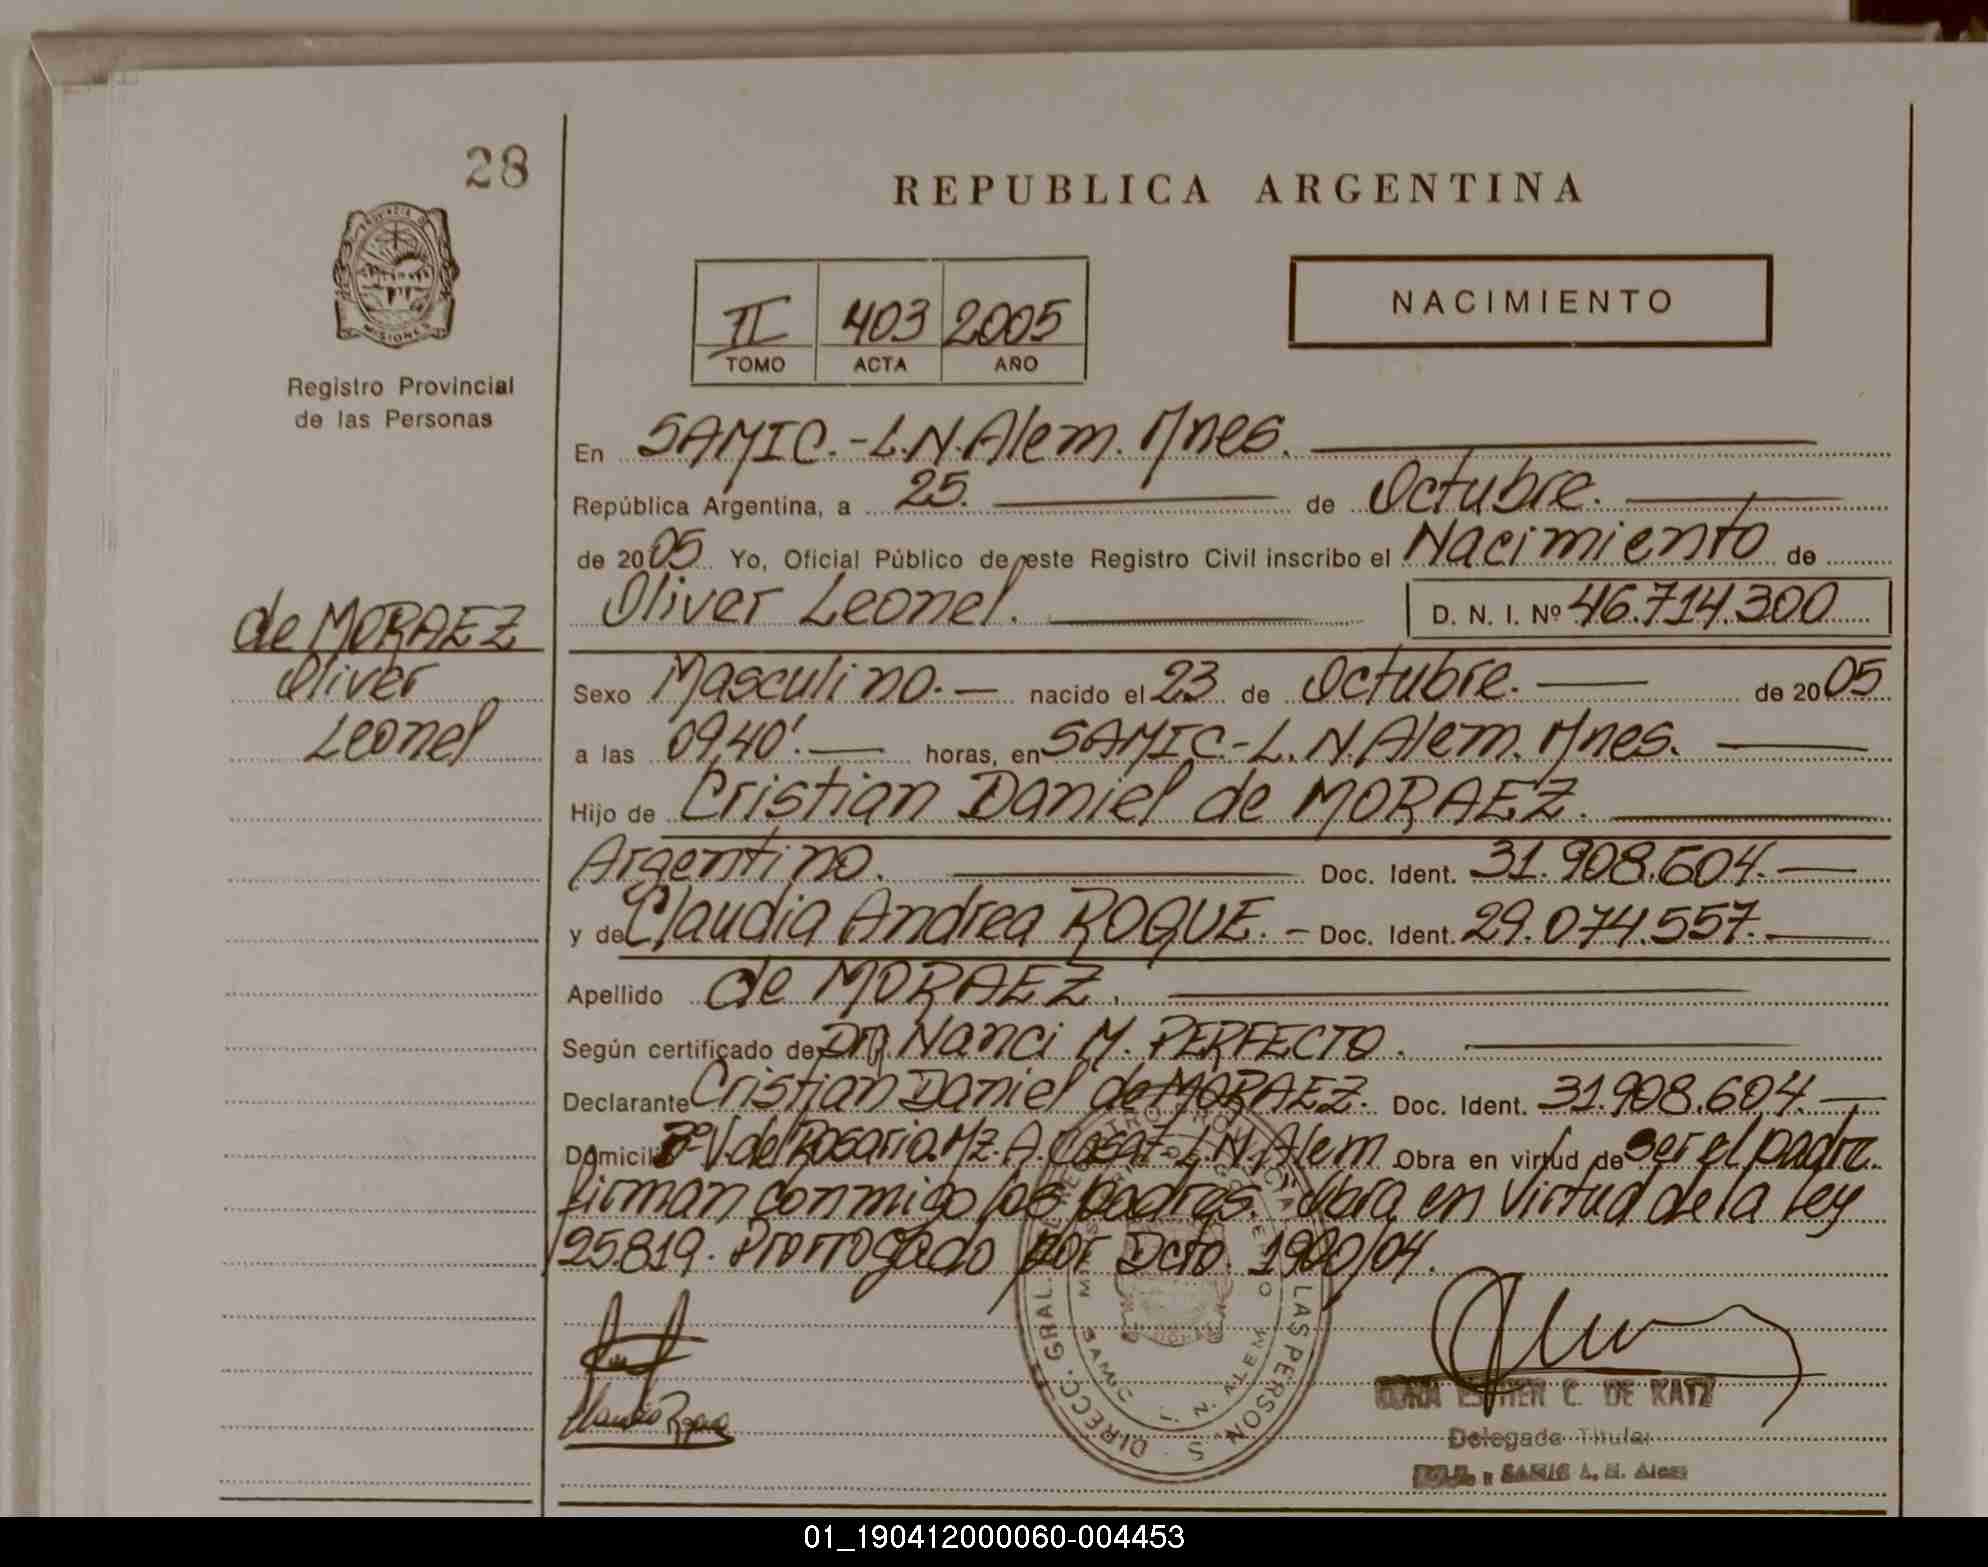 28
REPUBLICA ARGENTINA
NACIMIENTO
II 403 2005
TOMO ACTA AÑO
MISIONES
Registro Provincial
de las Personas
En SAMIC.-L.N.Alem. Mnes.
República Argentina, a 25. de Octubre.
de 2005 Yo, Oficial Público de este Registro Civil inscribo el Nacimiento de
Oliver Leonel. D. N. I. Nº 46.714.300
de MORAEZ
Oliver
Leonel
Sexo Masculino.- nacido el 23 de Octubre. de 2005
a las 09,40'. horas, en SAMIC-L.N.Alem. Mnes.
Hijo de Cristian Daniel de MORAEZ.
Argentino. Doc. Ident. 31.908.604.
y de Claudia Andrea ROQUE. - Doc. Ident. 29.074.557.
Apellido de MORAEZ.
Según certificado de Dra. Nanci M. PERFECTO.
Declarante Cristian Daniel de MORAEZ. Doc. Ident. 31.908.604.
Domicilio Bº V. del Rosario. Mz. A. Casa L.N.Alem Obra en virtud de ser el padre.
firman conmigo los padres. Obra en virtud de la Ley
25.819. Prorrogado por Dcto. 1900/04.
DIRECC. GRAL. LAS PERSONAS
SAMIC L. N. ALEM
ESTHER C. DE KATZ
Delegada Titular
SAMIC L. N. Alem
01_190412000060-004453